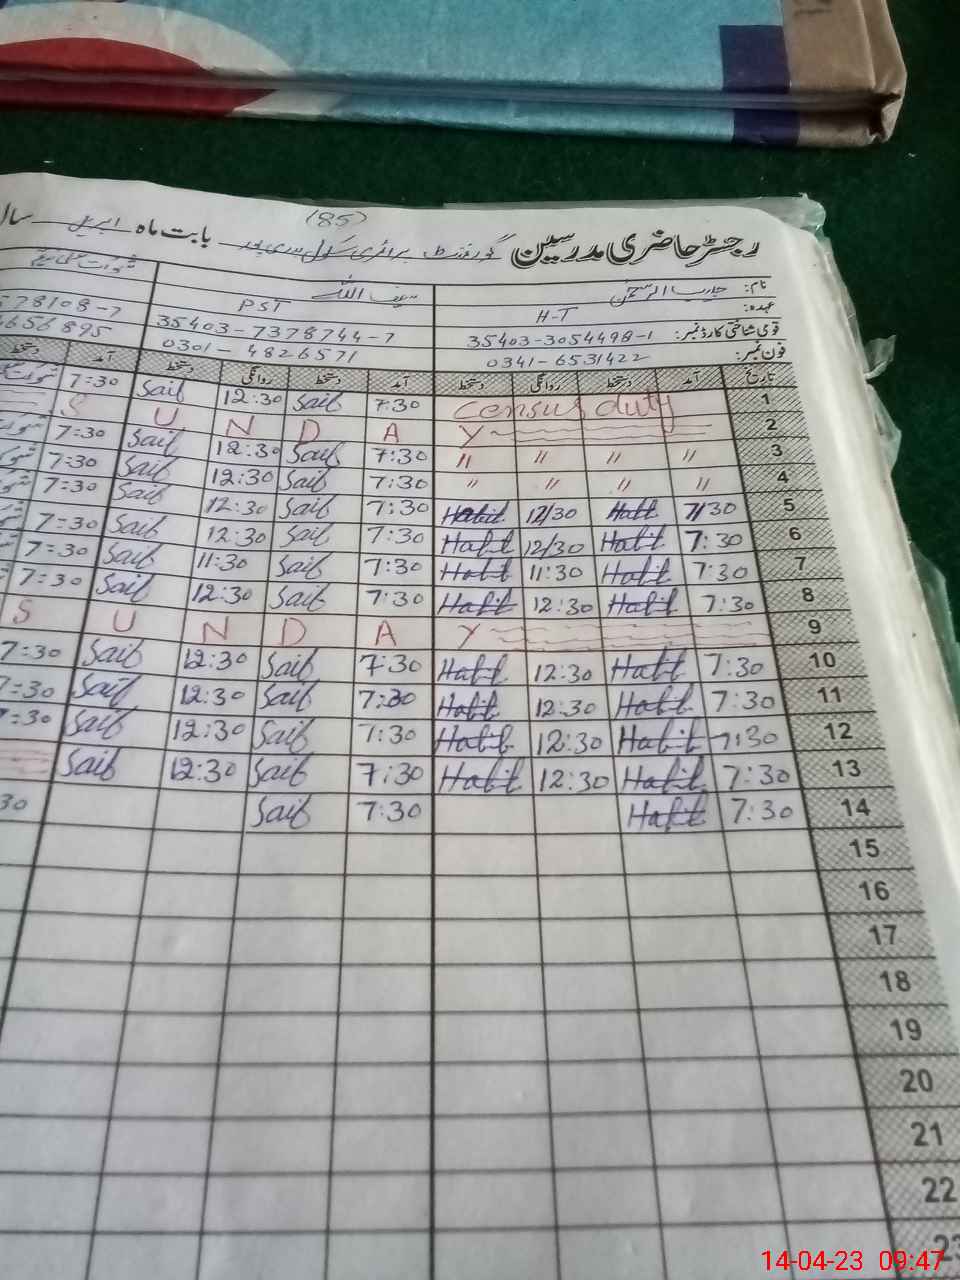 (85)
رجسٹر حاضری مدرسین گورنمنٹ پرائمری سکول بابت ماہ اپریل سال
نام: حبیب الرحمٰن سیف اللہ
عہدہ: H-T PST
قومی شناختی کارڈ نمبر: 35403-3054498-1 35403-7378744-7 578108-7
فون نمبر: 0341-6531422 0301-4826571 4656895
تاریخ آمد دستخط روانگی دستخط آمد دستخط روانگی دستخط آمد دستخط
7:30 Saif 12:30 Saif 7:30 Census duty 1
S U N D A Y 2
7:30 Saif 12:30 Saif 7:30 〃 〃 〃 〃 3
7:30 Saif 12:30 Saif 7:30 〃 〃 〃 〃 4
7:30 Saif 12:30 Saif 7:30 Habib 12/30 Habib 7/30 5
7:30 Saif 12:30 Saif 7:30 Habib 12/30 Habib 7:30 6
7:30 Saif 11:30 Saif 7:30 Habib 11:30 Habib 7:30 7
7:30 Saif 12:30 Saif 7:30 Habib 12:30 Habib 7:30 8
S U N D A Y 9
7:30 Saif 12:30 Saif 7:30 Habib 12:30 Habib 7:30 10
7:30 Saif 12:30 Saif 7:30 Habib 12:30 Habib 7:30 11
7:30 Saif 12:30 Saif 7:30 Habib 12:30 Habib 7:30 12
Saif 12:30 Saif 7:30 Habib 12:30 Habib 7:30 13
30 Saif 7:30 Habib 7:30 14
15
16
17
18
19
20
21
22
23
14-04-23 09:47